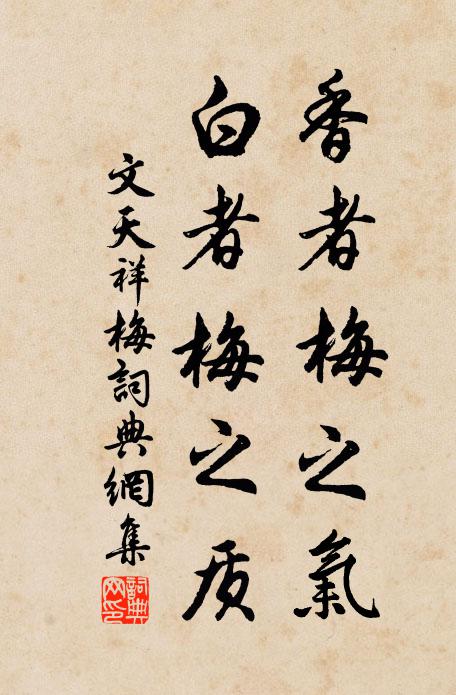 香者梅之氣
白者梅之质
文天祥梅詞典網集
詞典网印